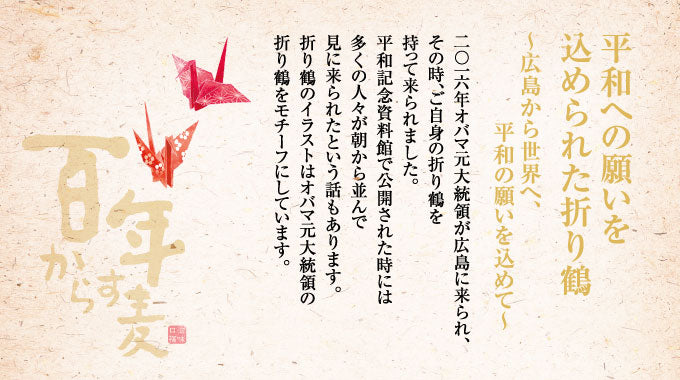 平和への願いを
込められた折り鶴
〜広島から世界へ、
平和の願いを込めて〜
二〇一六年オバマ元大統領が広島に来られ、
その時、ご自身の折り鶴を
持って来られました。
平和記念資料館で公開された時には
多くの人々が朝から並んで
見に来られたという話もあります。
折り鶴のイラストはオバマ元大統領の
折り鶴をモチーフにしています。
百年
からす麦